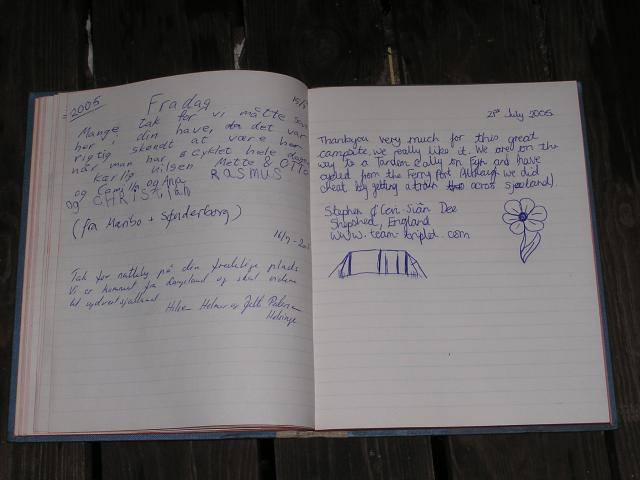 2005
Fradag
15/7
Mange tak for vi måtte sove
her i din have, da det var
rigtig skøndt at være her
når man har cyklet hele dagen
Kærlig hilsen Mette & OTTO
og Camilla og Ana RASMUS
og CHRISTIAN
(fra Maribo + Sønderborg)
16/7-2005
Tak for nattely på den fredelige plads
Vi er kommet fra og skal videre
til sydvestsjælland
Hilsen Helmer og Petersen
Helsinge
21st July 2005
Thankyou very much for this great
campsite, we really like it. We are on the
way to a Tandem Rally on Fyn and have
cycled from the Ferry Port (Although we did
cheat by getting a train across Sjaelland).
Stephen & Ceri-Siân Dee
Shepshed, England
www.team-triplet.com